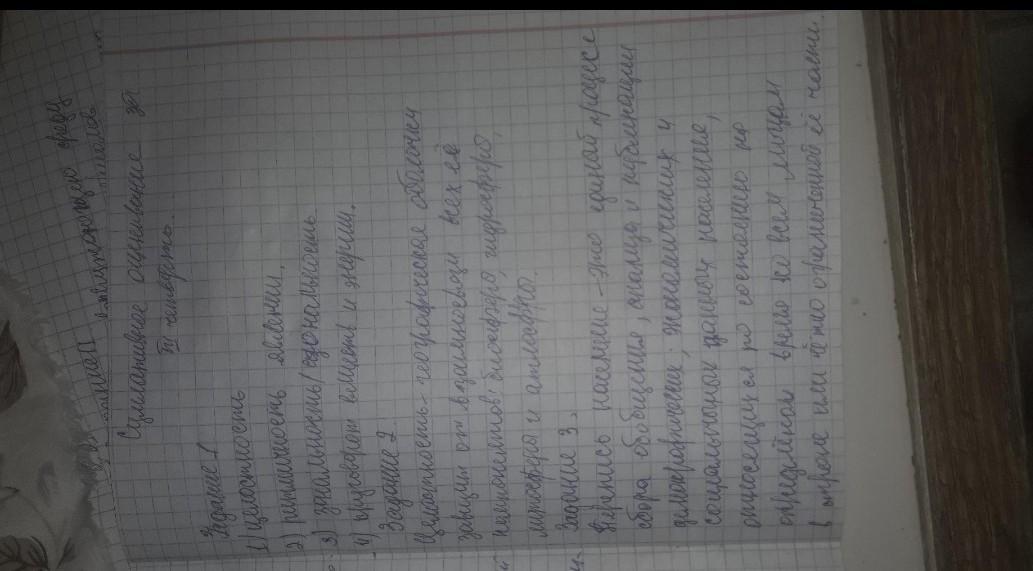 окружающую среду
Суммативное оценивание за
III четверть.
Задание 1
1) целостность
2) ритмичность явлении.
3) зональность/азональность
4) круговорот веществ и энергии.
Задание 2.
Целостность - географическая оболочки
зависит от взаимосвязи всех её
компонентов: биосфера, гидросфера,
литосфера и атмосфера.
Задание 3.
Перепись население - это единый процесс
сбора обобщения, анализа и публикации
демографических, экономических и
социальных данных население,
относящихся по состоянию на
определённое время ко всем лицам
в стране или чётко ограниченной её части.